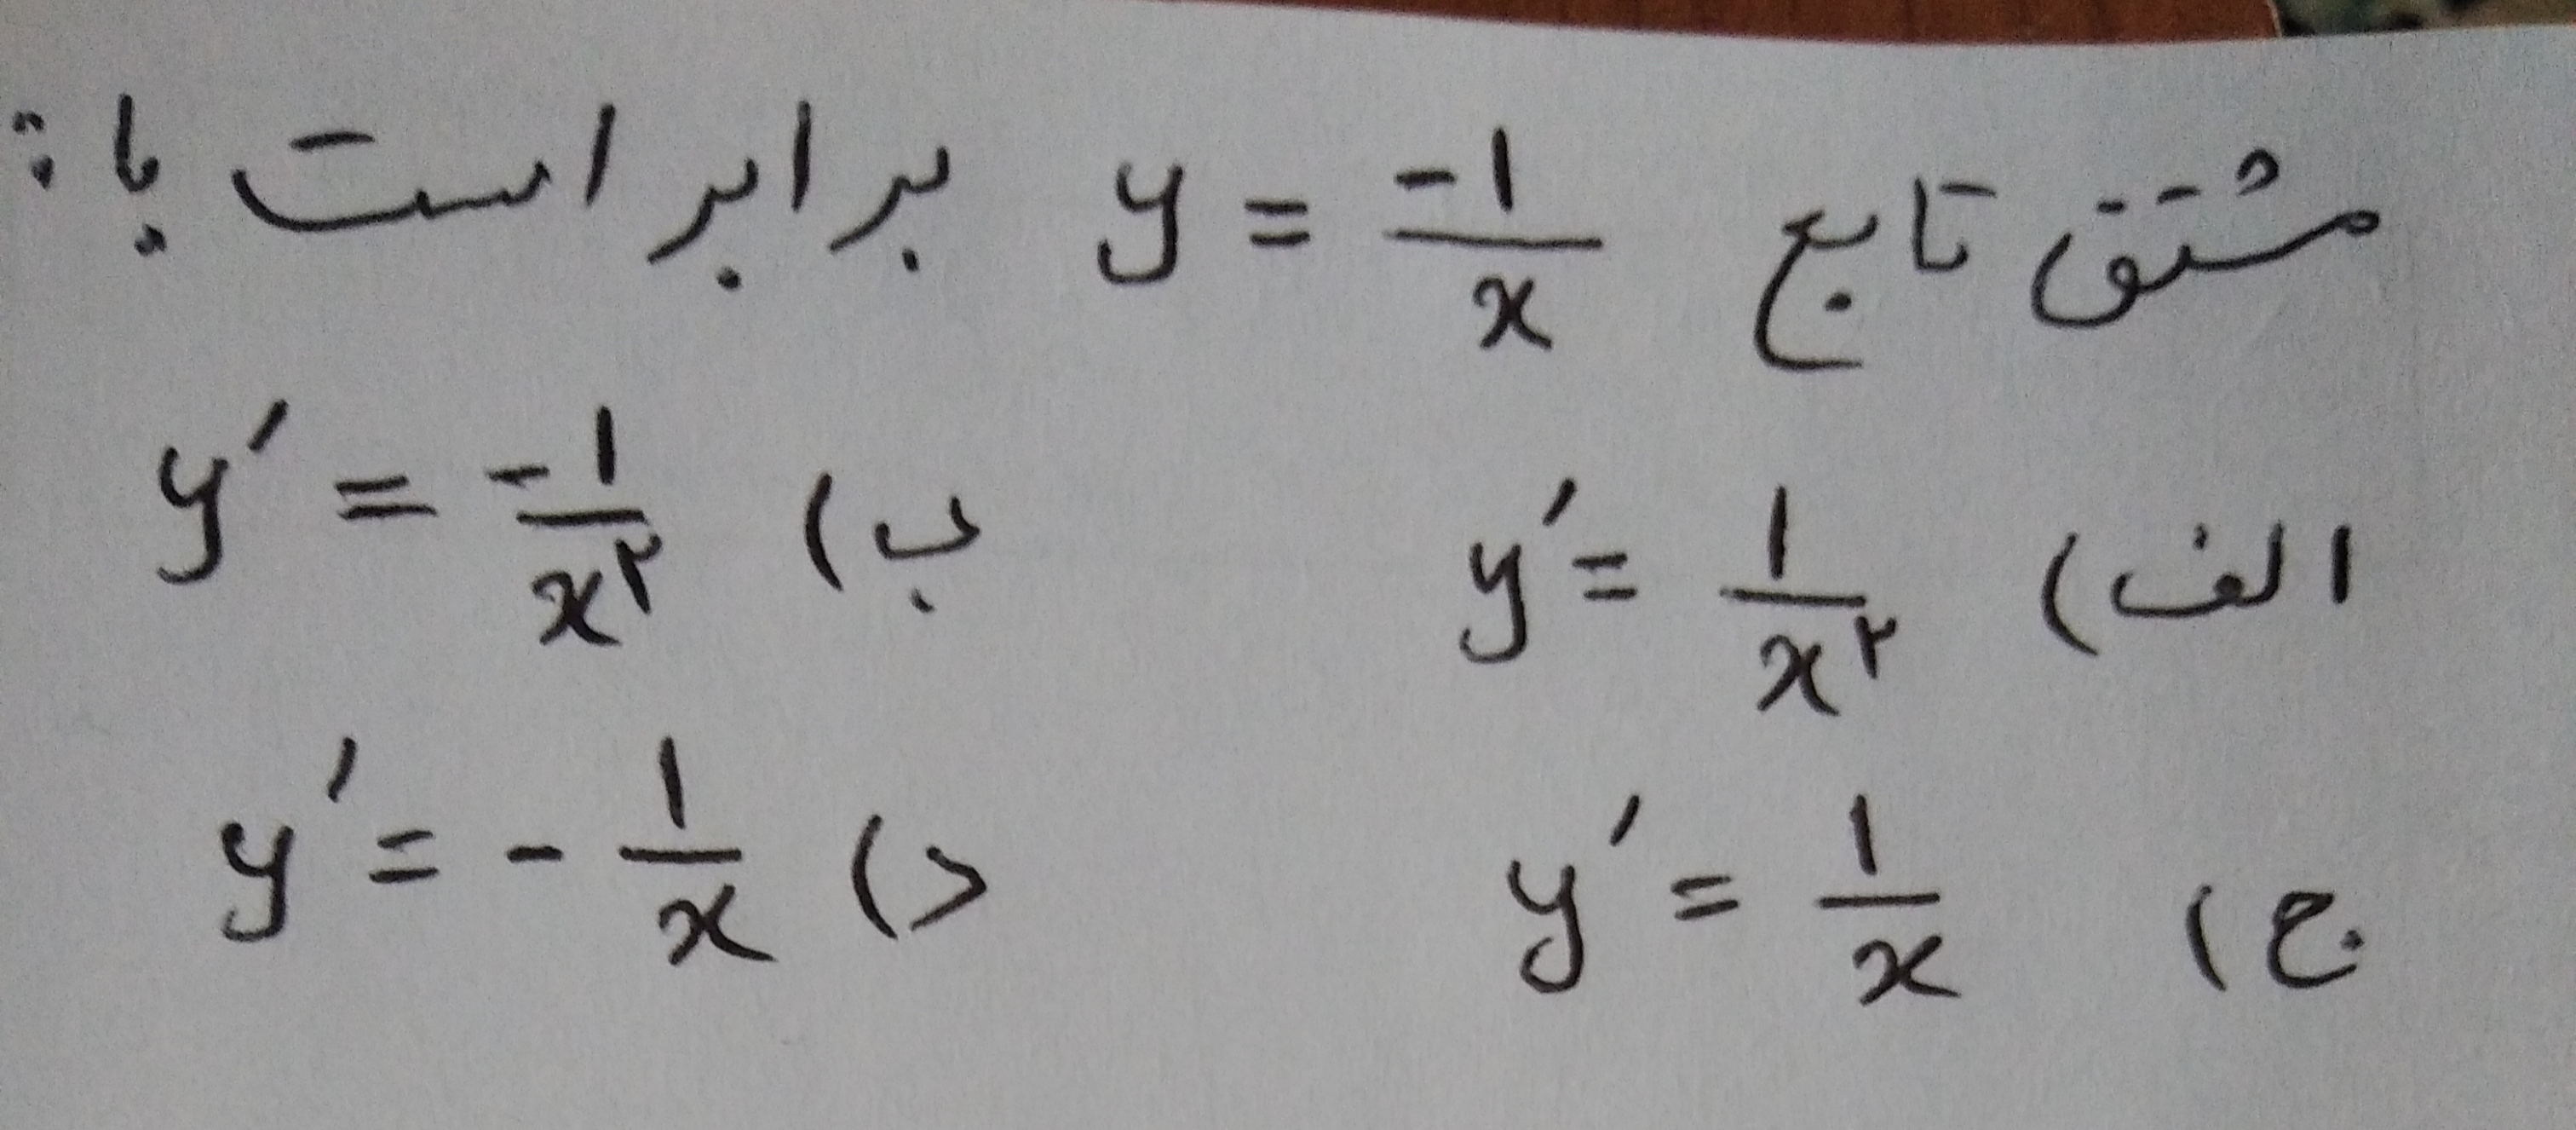 مشتق تابع y = -۱/x برابر است با :
الف) y′ = ۱/x^۲ ب) y′ = -۱/x^۲
ج) y′ = ۱/x د) y′ = - ۱/x